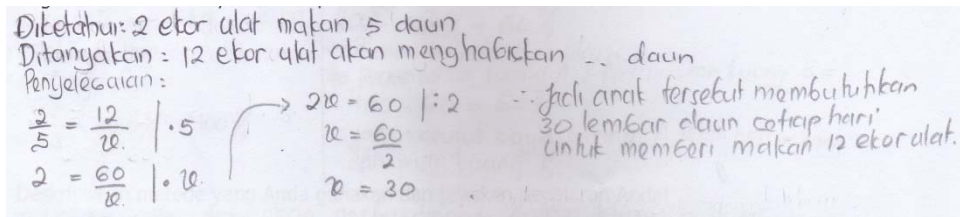 Diketahui: 2 ekor ulat makan 5 daun
Ditanyakan: 12 ekor ulat akan menghabiskan ... daun
Penyelesaian:
2/5 = 12/x | · 5
2 = 60/x | · x
2x = 60 | : 2
x = 60/2
x = 30
∴ Jadi anak tersebut membutuhkan
30 lembar daun setiap hari
untuk memberi makan 12 ekor ulat.